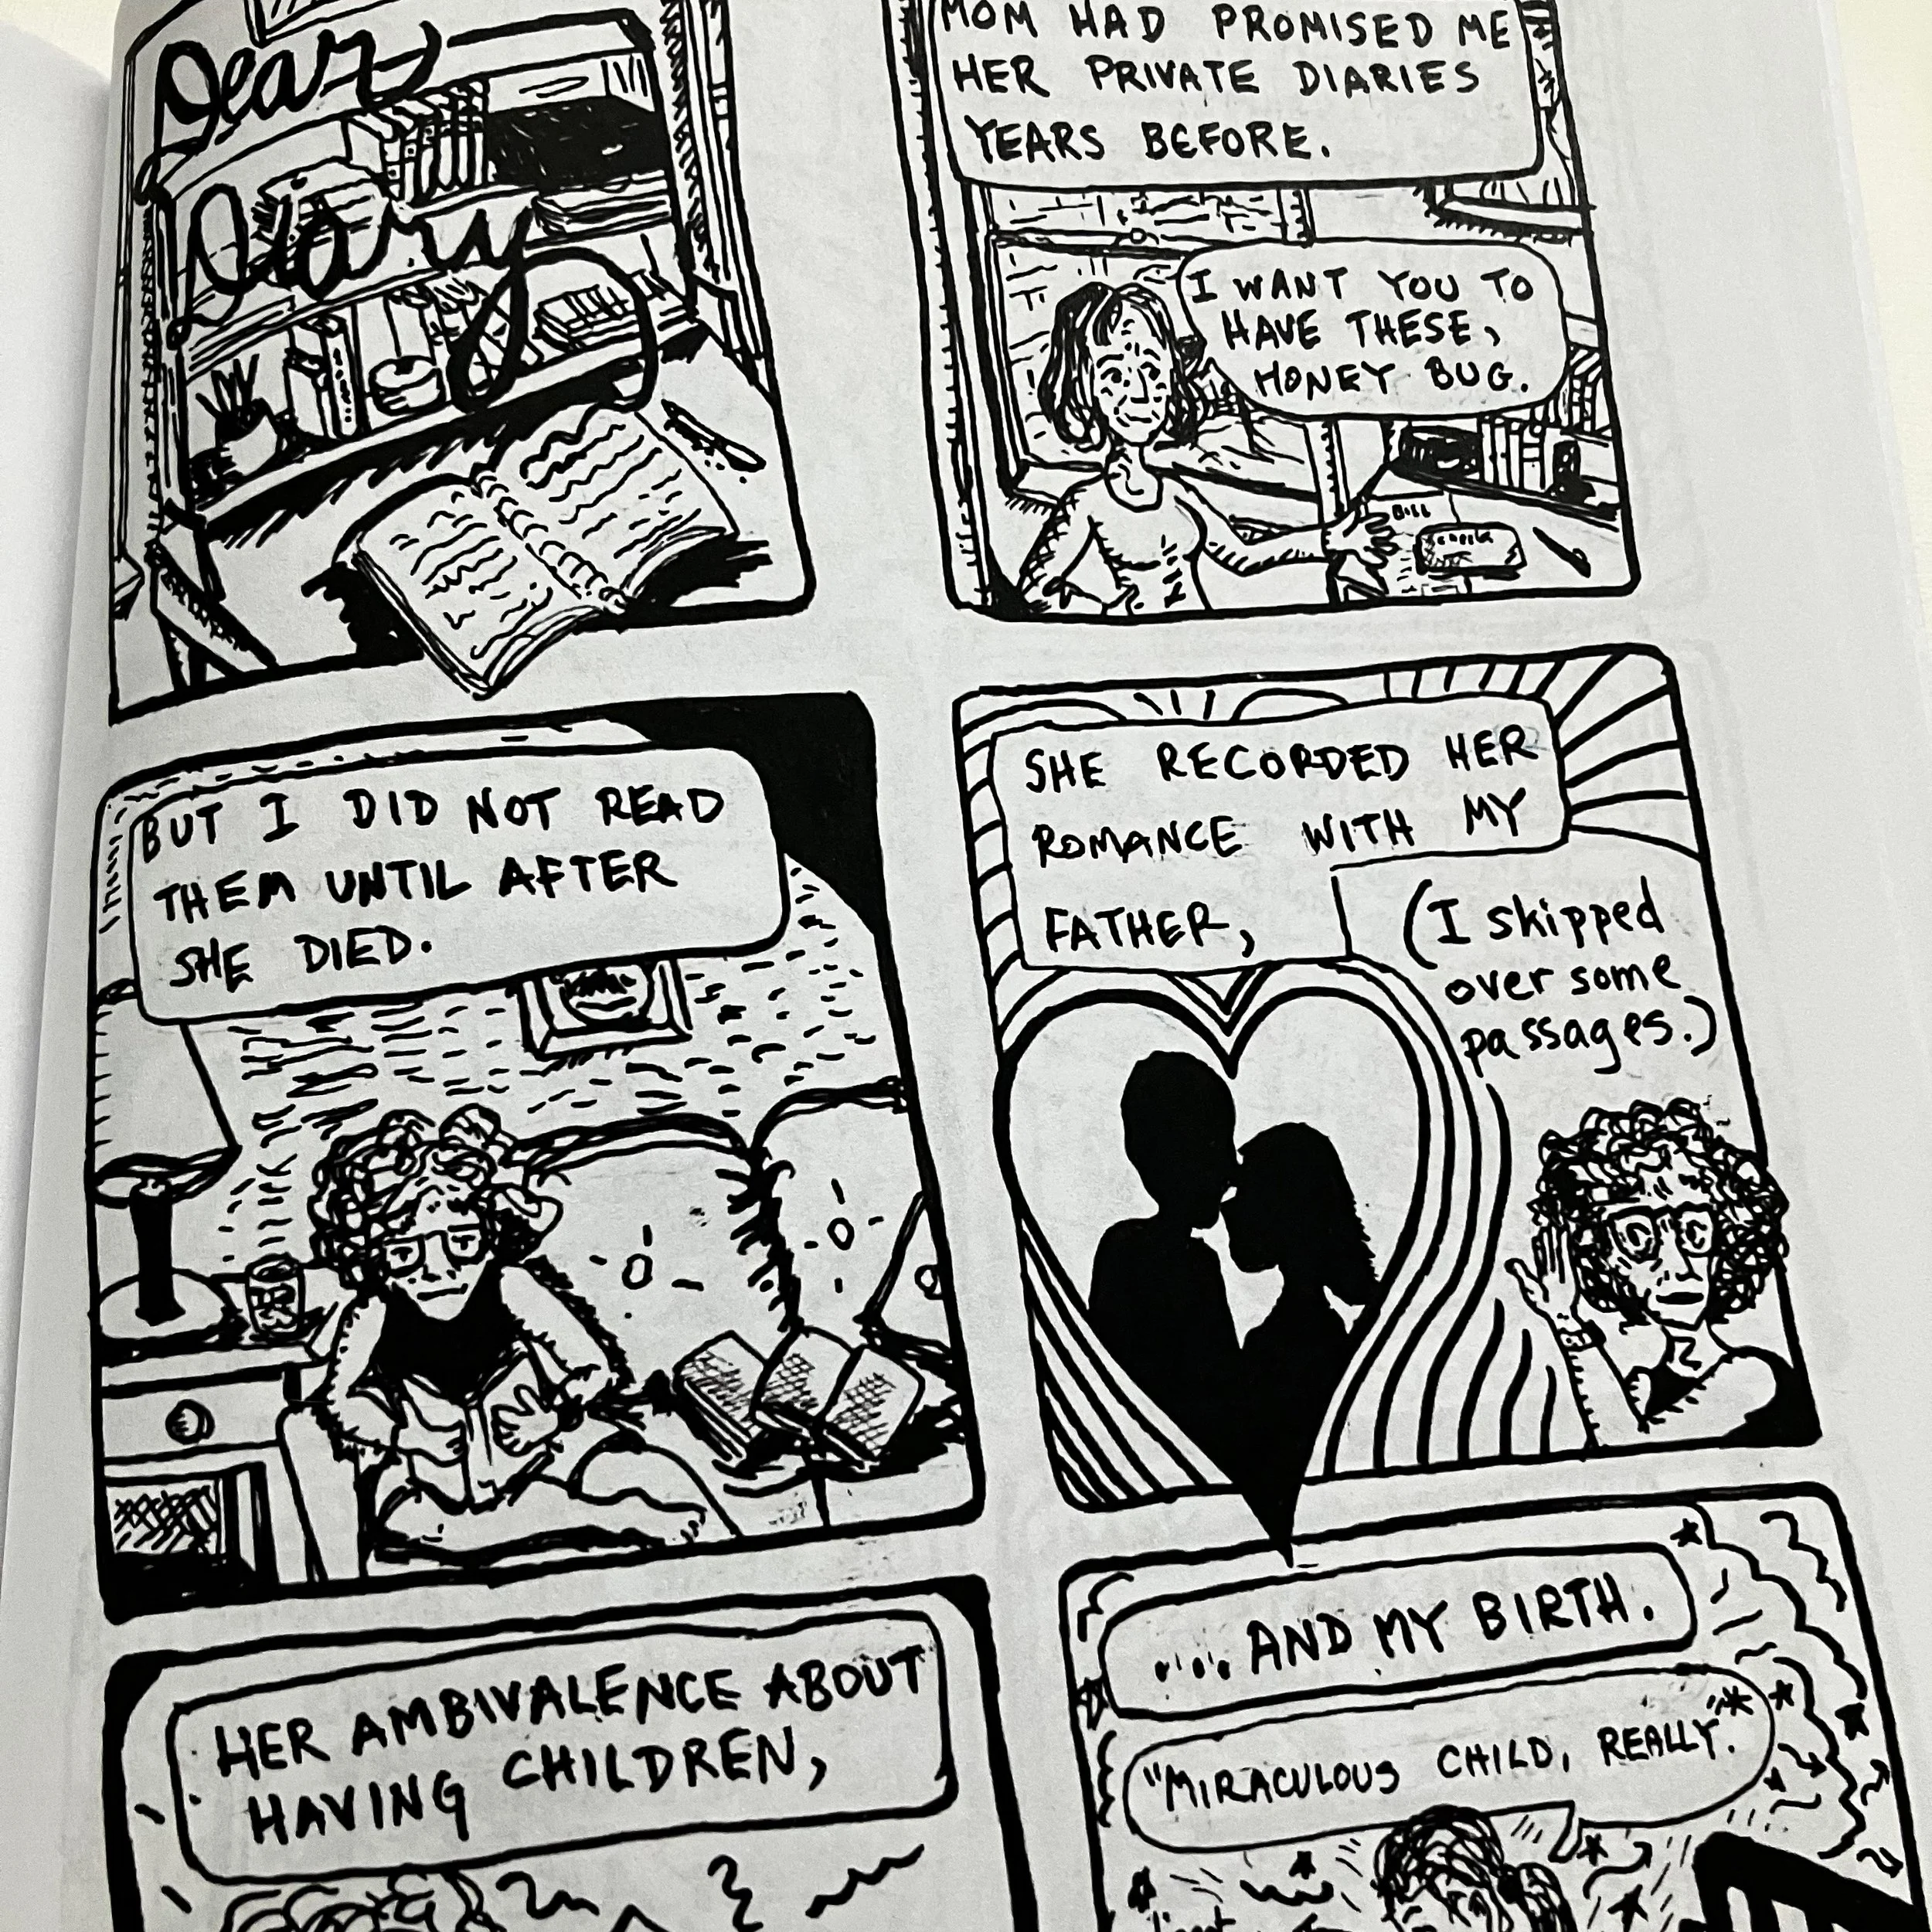 Dear
Diary
MOM HAD PROMISED ME
HER PRIVATE DIARIES
YEARS BEFORE.
I WANT YOU TO
HAVE THESE,
HONEY BUG.
BILL
BUT I DID NOT READ
THEM UNTIL AFTER
SHE DIED.
SHE RECORDED HER
ROMANCE WITH MY
FATHER,
(I skipped
over some
passages.)
HER AMBIVALENCE ABOUT
HAVING CHILDREN,
... AND MY BIRTH.
"MIRACULOUS CHILD, REALLY."*